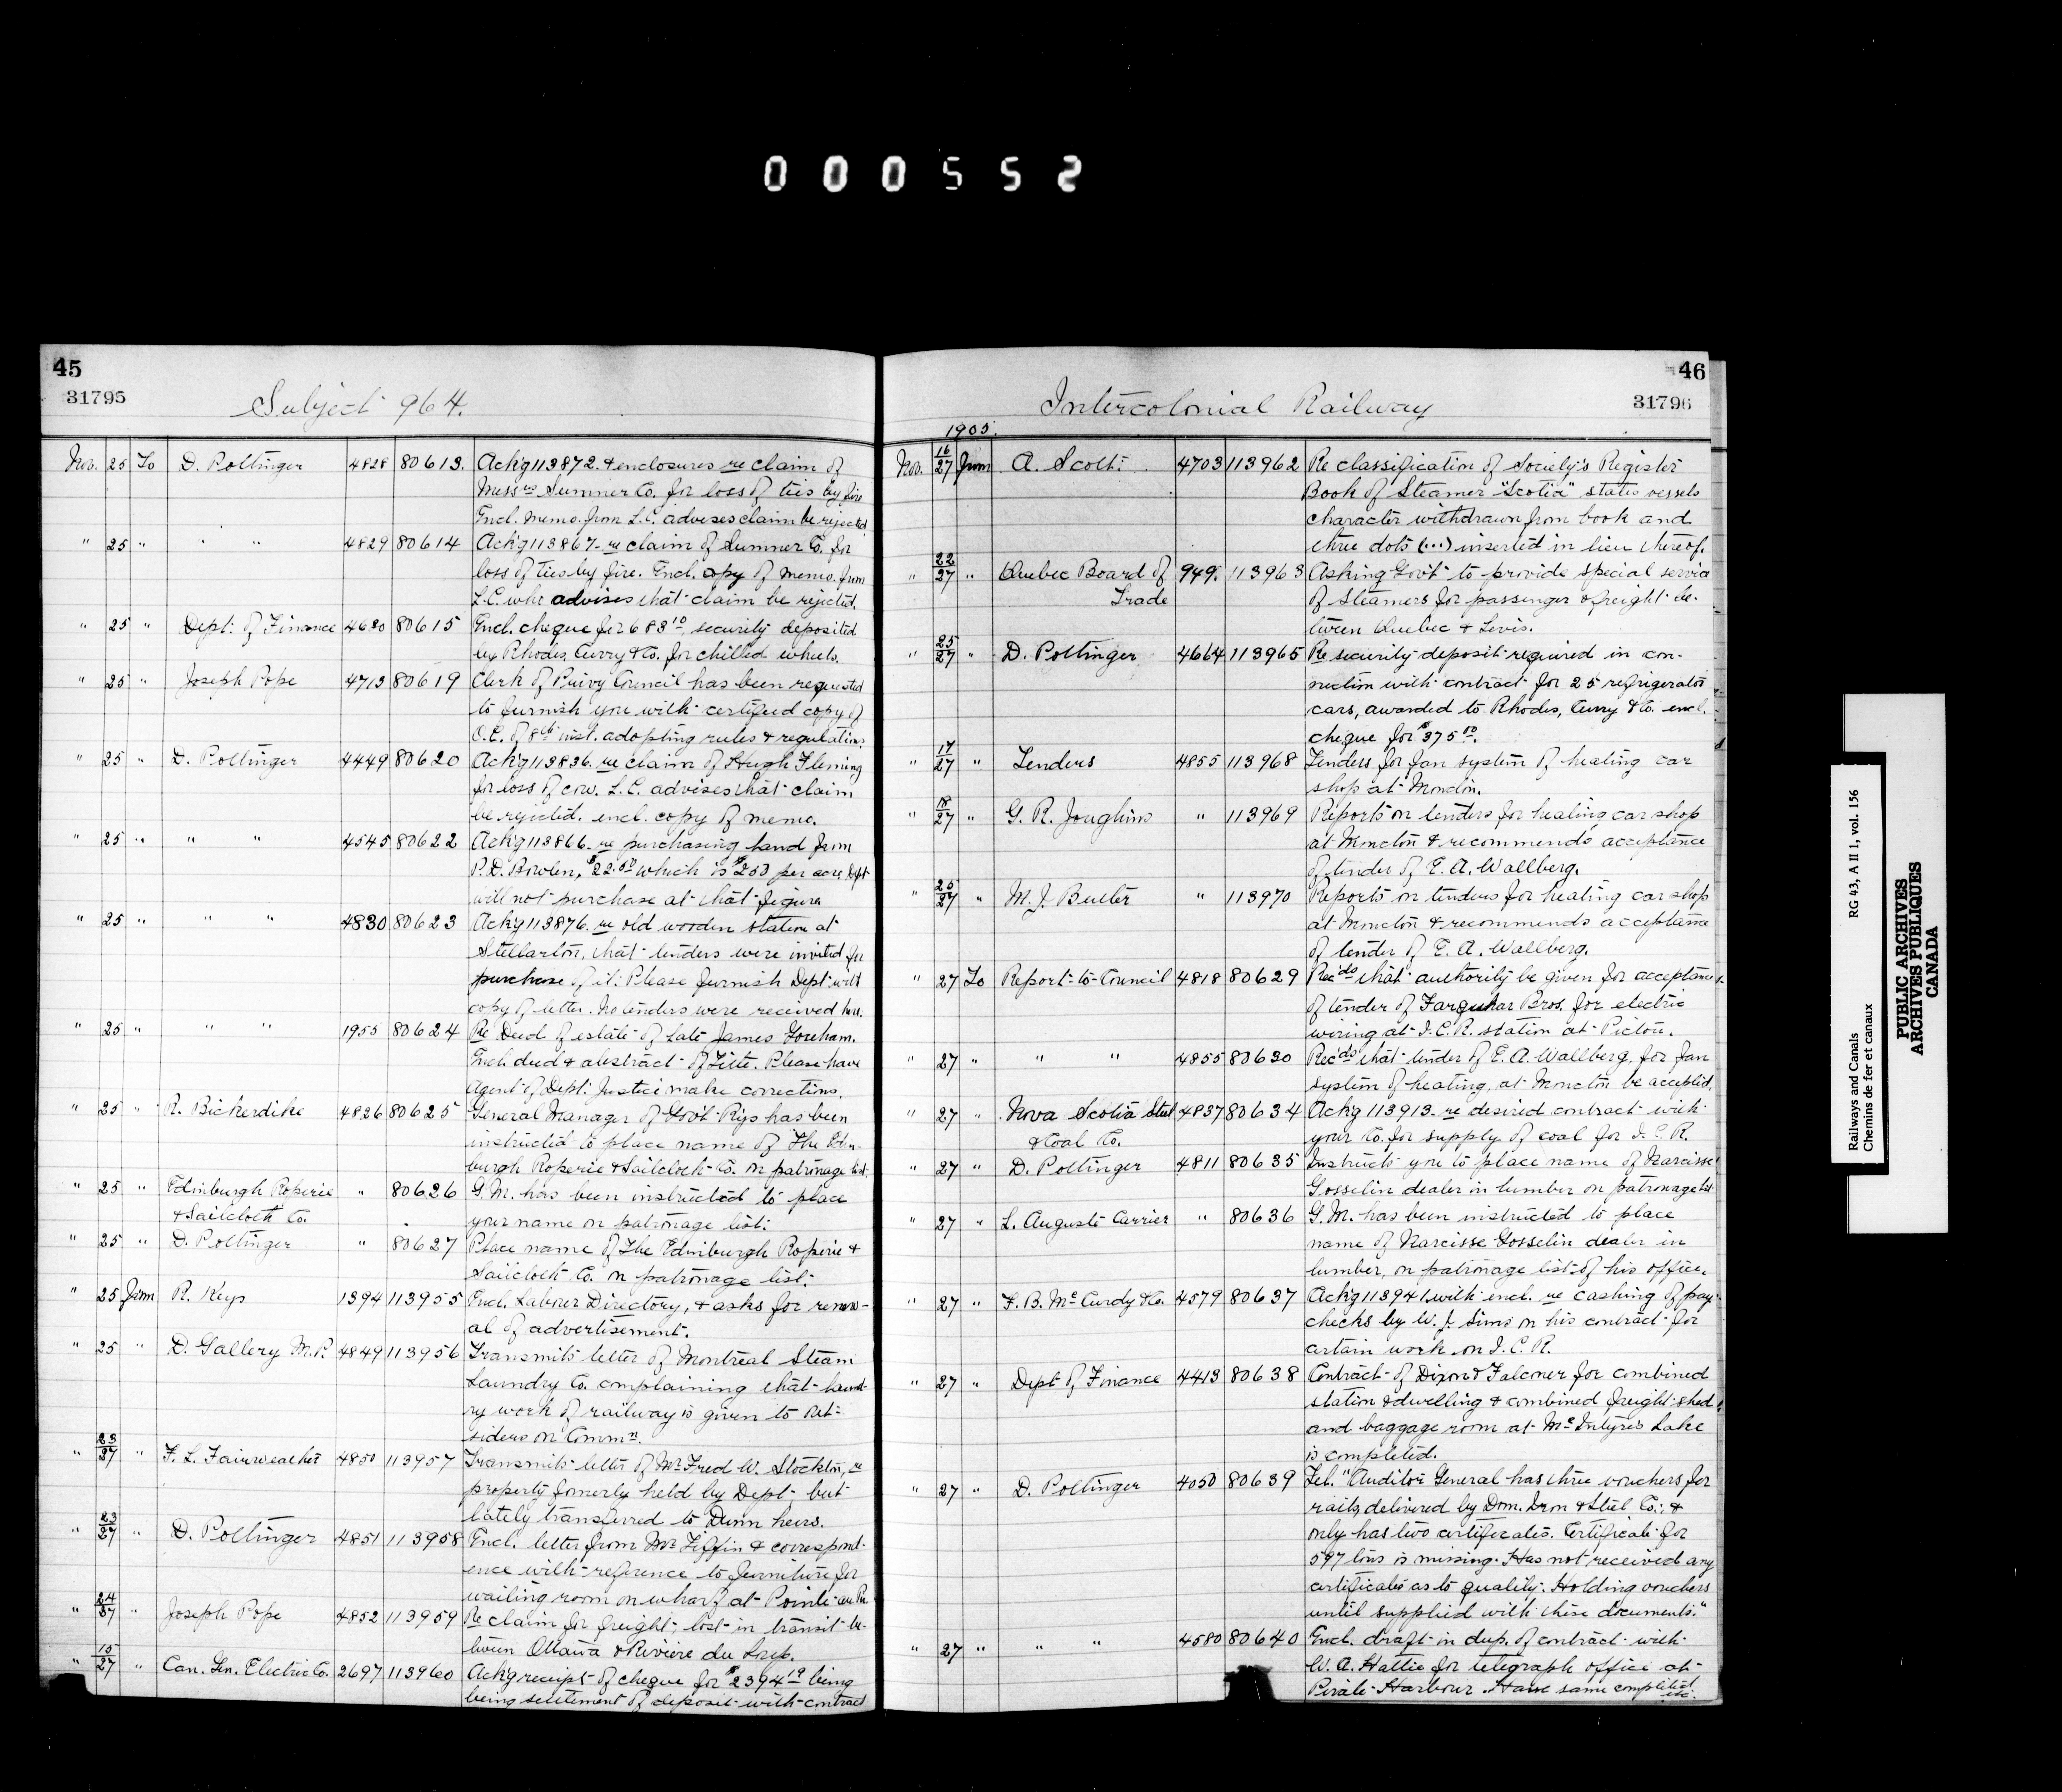 000552
45
31795
Subject 964.
Nov. 25 To D. Pottinger 4828 80613. Ackg 113872. & enclosures re claim of
Messrs Sumner Co. for loss of ties by fire
Encl. memo. from L.C. advises claim be rejected
" 25 " " " 4829 80614 Ackg 113867. re claim of Sumner Co. for
loss of ties by fire. Encl. copy of memo. from
L.C. who advises that claim be rejected.
" 25 " Dept. of Finance 4620 80615 Encl. cheque for 683 10, security deposited
by Rhodes, Curry & Co. for chilled wheels.
" 25 " Joseph Pope 4713 80619 Clerk of Privy Council has been requested
to furnish you with certified copy of
O.C. of 8th inst. adopting rules & regulations
" 25 " D. Pottinger 4449 80620 Ackg 113836. re claim of Hugh Fleming
for loss of cow. L.C. advises that claim
be rejected. encl. copy of memo.
" 25 " " " 4545 80622 Ackg 113866. re purchasing land from
P.D. Bowlen, $22.50 which is $250 per acre, Dept
will not purchase at that figure
" 25 " " " 4830 80623 Ackg 113876. re old wooden station at
Stellarton, that tenders were invited for
purchase of it. Please furnish Dept. with
copy of letter. No tenders were received here.
" 25 " " " 1955 80624 Re Deed of estate of late James Goreham.
Encl. deed & abstract of Title. Please have
Agent of Dept. Justice make corrections.
" 25 " R. Bickerdike 4826 80625 General Manager of Gov't Rys has been
instructed to place name of The Edin-
burgh Roperie & Sailcloth Co. on patronage list.
" 25 " Edinburgh Roperie " 80626 G.M. has been instructed to place
& Sailcloth Co. your name on patronage list.
" 25 " D. Pottinger " 80627 Place name of The Edinburgh Roperie &
Sailcloth Co. on patronage list.
" 25 from R. Keys 1394 113955 Encl. Labour Directory, & asks for renew-
al of advertisement.
" 25 " D. Gallery M.P. 4849 113956 Transmits letter of Montreal Steam
Laundry Co. complaining that laund-
ry work of railway is given to out-
siders on Commn.
" 23/27 " F. L. Fairweather 4850 113957 Transmits letter of Mr Fred W. Stockton, re
property formerly held by Dept. but
lately transferred to Dunn heirs.
" 23/27 " D. Pottinger 4851 113958 Encl. letter from Mr Tiffin & correspond-
ence with reference to furniture for
waiting room on wharf at Pointe-au-Pic
" 24/27 " Joseph Pope 4852 113959 Re claim for freight, lost in transit be-
tween Ottawa & Rivière du Loup.
" 15/27 " Can. Gen. Electric Co. 2697 113960 Ackg receipt of cheque for $2394 19 being
being settlement of deposit with contract
46
31796
Intercolonial Railway
1905.
Nov. 16/27 from A. Scott. 4703 113962 Re classification of Society's Register
Book of Steamer "Scotia" states vessels
character withdrawn from book and
three dots (...) inserted in lieu thereof.
" 22/27 " Quebec Board of 949. 113963 Asking Gov't to provide special service
Trade of Steamers for passenger & freight be-
tween Quebec & Levis.
" 25/27 " D. Pottinger 4664 113965 Re security deposit required in con-
nection with contract for 25 refrigerator
cars, awarded to Rhodes, Curry & Co. encl.
cheque for $375 10.
" 17/27 " Tenders 4855 113968 Tenders for fan system of heating car
shop at Moncton.
" 18/27 " G. R. Joughins " 113969 Reports on tenders for heating car shop
at Moncton & recommends acceptance
of tender of E. A. Wallberg.
" 25/27 " M. J. Butler " 113970 Reports on tenders for heating car shop
at Moncton & recommends acceptance
of tender of E. A. Wallberg.
" 27 To Report to Council 4818 80629 Rec'ds that authority be given for acceptance
of tender of Farquhar Bros. for electric
wiring at I.C.R. station at Pictou.
" 27 " " " 4855 80630 Rec'ds that tender of E. A. Wallberg, for fan
system of heating, at Moncton be accepted.
" 27 " Nova Scotia Steel 4837 80634 Ackg 113913. re desired contract with
& Coal Co. your Co. for supply of coal for I.C.R.
" 27 " D. Pottinger 4811 80635 Instructs you to place name of Narcisse
Gosselin dealer in lumber on patronage list.
" 27 " L. Auguste Carrier " 80636 G.M. has been instructed to place
name of Narcisse Gosselin dealer in
lumber, on patronage list of his office.
" 27 " F. B. McCurdy & Co. 4579 80637 Ackg 113941, with encl. re cashing of pay
checks by W. J. Sims on his contract for
certain work on I.C.R.
" 27 " Dept of Finance 4413 80638 Contract of Dixon & Falconer for combined
station & dwelling & combined freight shed
and baggage room at McIntyre's Lake
is completed.
" 27 " D. Pottinger 4050 80639 Tel. "Auditor General has three vouchers for
rails, delivered by Dom. Iron & Steel Co., &
only has two certificates. Certificate for
597 tons is missing. Has not received any
certificates as to quality. Holding vouchers
until supplied with these documents."
" 27 " " " 4580 80640 Encl. draft in dup. of contract with
W. A. Hattie for telegraph office at
Pirate Harbour. Have same completed
etc.
Railways and Canals RG 43, A II 1, vol. 156
Chemins de fer et canaux
PUBLIC ARCHIVES
ARCHIVES PUBLIQUES
CANADA